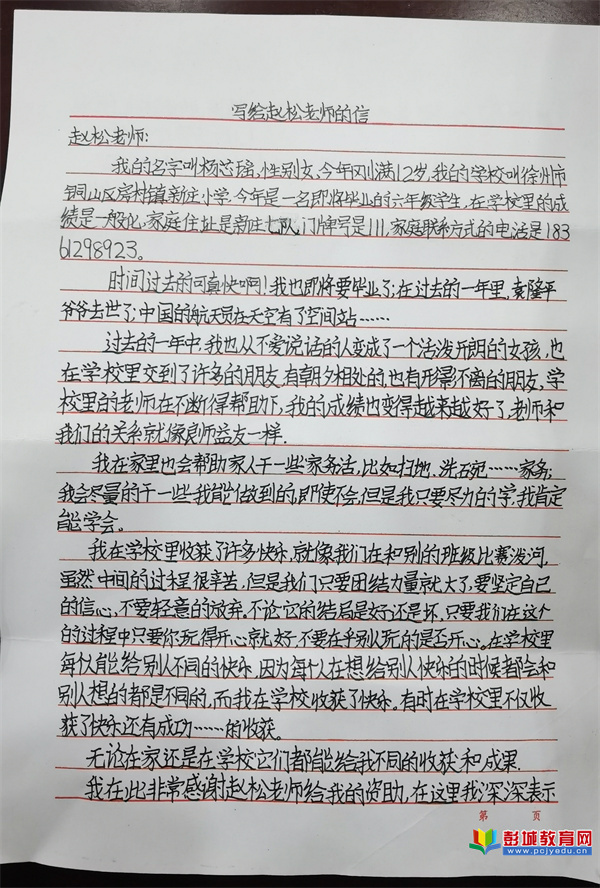 写给赵松老师的信
赵松老师:
我的名字叫杨芯瑶,性别女,今年刚满12岁,我的学校叫徐州市
铜山区房村镇新庄小学,今年是一名即将毕业的六年级学生,在学校里的成
绩是一般化,家庭住址是新庄七队,门牌号是111,家庭联系方式的电话是183
61298923。
时间过去的可真快啊!我也即将要毕业了;在过去的一年里,袁隆平
爷爷去世了;中国的航天员在天空有了空间站……
过去的一年中,我也从不爱说话的人变成了一个活泼开朗的女孩,也
在学校里交到了许多的朋友,有朝夕相处的,也有形影不离的朋友,学
校里的老师在不断得帮助下,我的成绩也变得越来越好了,老师和
我们的关系就像良师益友一样.
我在家里也会帮助家人干一些家务活,比如扫地、洗碗……家务;
我会尽量的干一些我能做到的,即使不会,但是我只要尽力的学,我肯定
能学会。
我在学校里收获了许多快乐,就像我们在和别的班级比赛拔河,
虽然中间的过程很辛苦,但是我们只要团结力量就大了,要坚定自己
的信心,不要轻意的放弃。不论它的结局是好还是坏,只要我们在这个
的过程中只要你玩得开心就好,不要在乎别人玩的是否开心。在学校里
每个人能给别人不同的快乐,因为每个人在想给别人快乐的时候都会和
别人想的都是不同的,而我在学校收获了快乐。有时在学校里不仅收
获了快乐还有成功……的收获。
无论在家还是在学校它们都能给我不同的收获和成果.
我在此非常感谢赵松老师给我的资助,在这里我深深表示
第 页
彭城教育网
www.pcjyedu.cn